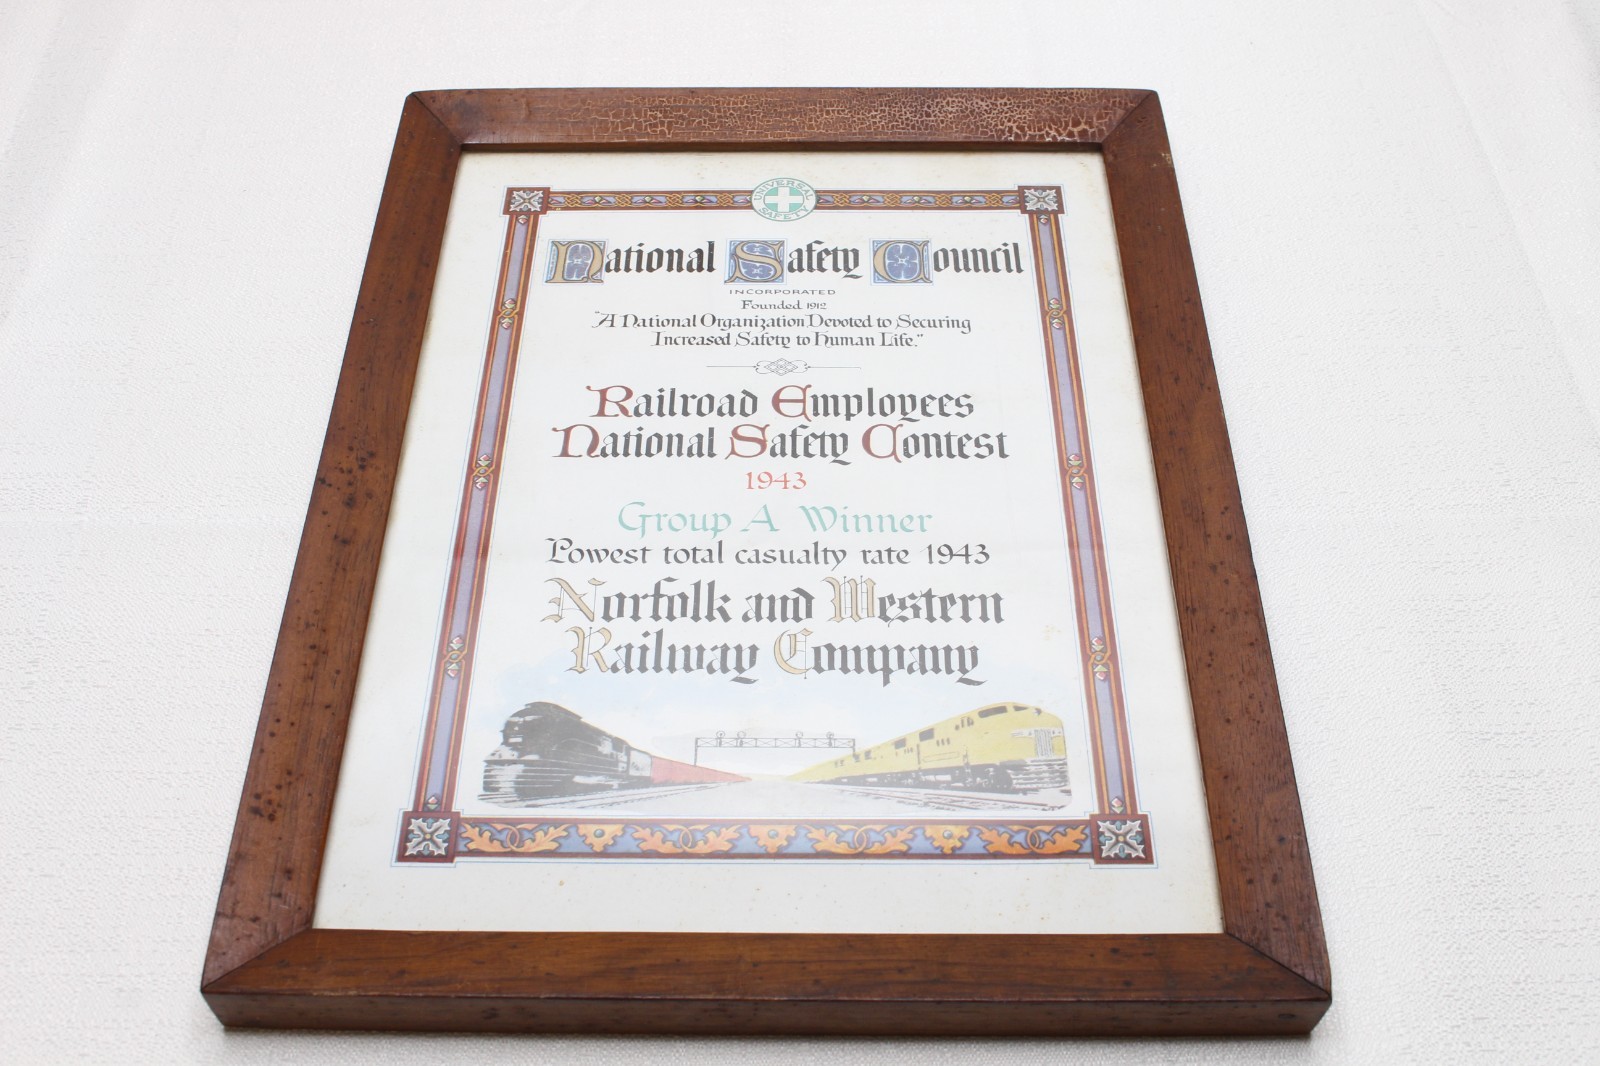 UNIVERSAL SAFETY
National Safety Council
INCORPORATED
Founded 1912
"A National Organization Devoted to Securing
Increased Safety to Human Life."
Railroad Employees
National Safety Contest
1943
Group A Winner
Lowest total casualty rate 1943
Norfolk and Western
Railway Company